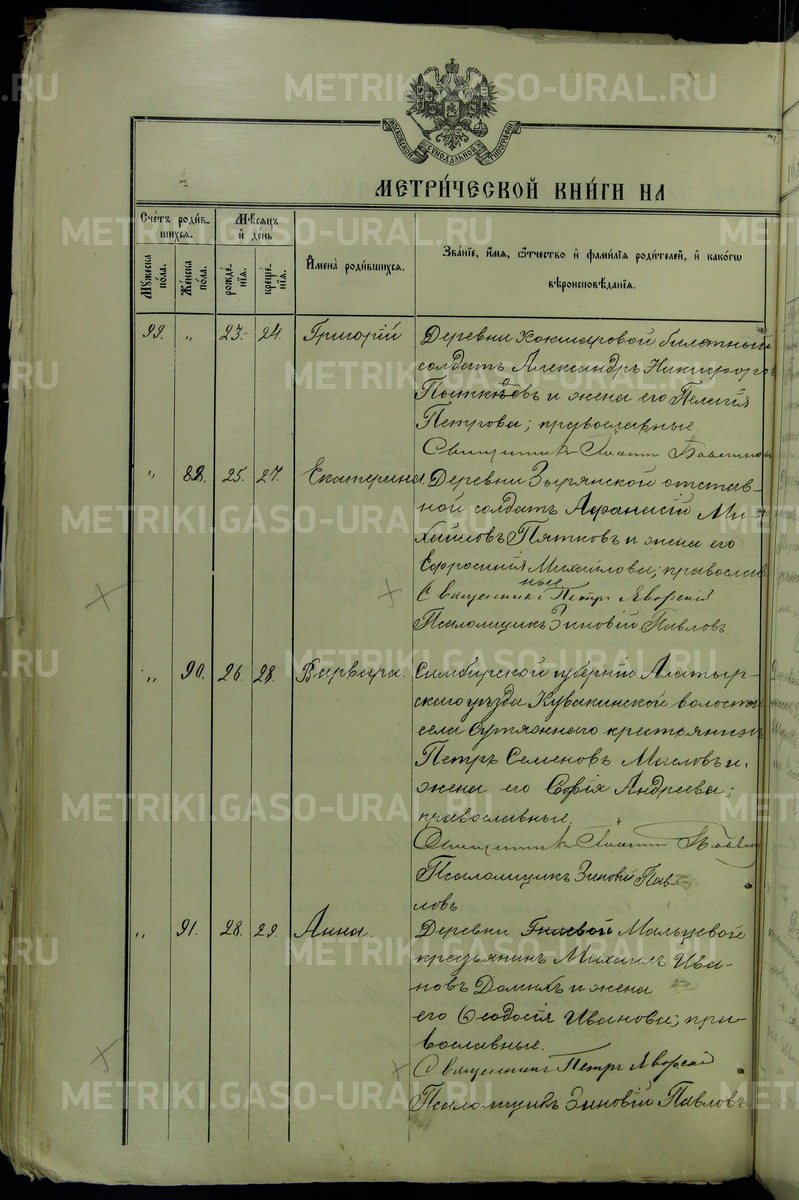 МОСКОВСКОЙ СѴНОДАЛЬНОЙ ТИПОГРАФІИ
МЕТРИ́ЧЕСКОЙ КНИ́ГИ НА
Сче́тъ роди́в-
шихся.
Мꙋжеска по́ла.
Же́нска по́ла.
Мѣ́сяцъ
и҆ де́нь
рожде́-
нія.
креще́-
нія.
И҆мена̀ роди́вшихся.
Зва́ніе, и҆́мя, ѻ҆́тчество и҆ фами́лія роди́телей, и҆ како́гѡ
вѣроисповѣ́данія.
99. „ 23. 24. Григорій Деревни Кокшаровой билетный
солдатъ Александръ Никифоровъ
и жена его Пелагія
Петрова; православные.
Священникъ
„ 88. 25. 27. Екатерина. Деревни Зырянской отстав-
ной солдатъ Афанасій Ми-
хайловъ Пятковъ и жена его
Ефросинія Михайлова; православ
ные
Священникъ Петръ Яворскій
Псаломщикъ Зиновій Павловъ
„ 90. 26. 28. Варвара. Симбирской губерніи Алатыр-
скаго уѣзда Кувакинской волости
села Сутяжнаго крестьянинъ
Петръ Семеновъ Масловъ и
жена его Софія Андреева;
православные.
Священникъ
Псаломщикъ Зиновій Пав-
ловъ
„ 91. 28. 29. Анна. Деревни Гнаевой Мальцевой
крестьянинъ Михаилъ Ива-
новъ и жена
его Ѳеодосія Иванова; пра-
вославные.
Священникъ Петръ Яворскій
Псаломщикъ Зиновій Павловъ
METRIKI.GASO-URAL.RU